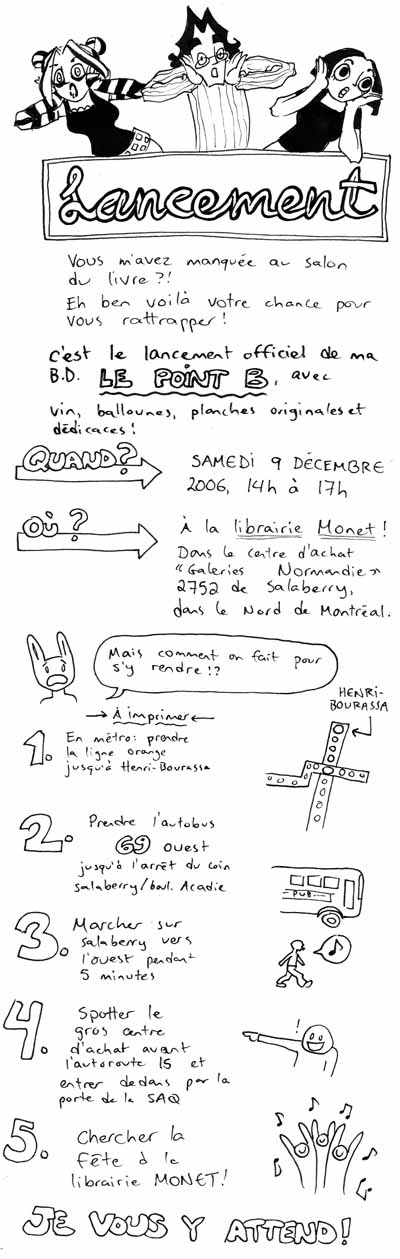 Lancement
Vous m'avez manquée au salon
du livre?!
Eh ben voilà votre chance pour
vous rattrapper!
c'est le lancement officiel de ma
B.D. LE POINT B, avec
vin, ballounes, planches originales et
dédicaces!
QUAND?
SAMEDI 9 DÉCEMBRE
2006, 14h à 17h
OÙ?
À la librairie Monet!
Dans le centre d'achat
"Galeries Normandie"
2752 de Salaberry,
dans le Nord de Montréal.
Mais comment on fait pour
s'y rendre!?
→ À imprimer ←
HENRI-
BOURASSA
1. En métro: prendre
la ligne orange
jusqu'à Henri-Bourassa
2. Prendre l'autobus
69 ouest
jusqu'à l'arrêt du coin
Salaberry/boul. Acadie
PUB
3. Marcher sur
Salaberry vers
l'ouest pendant
5 minutes
4. Spotter le
gros centre
d'achat avant
l'autoroute 15 et
entrer dedans par la
porte de la SAQ
!
5. Chercher la
fête à la
librairie MONET!
JE VOUS Y ATTEND!